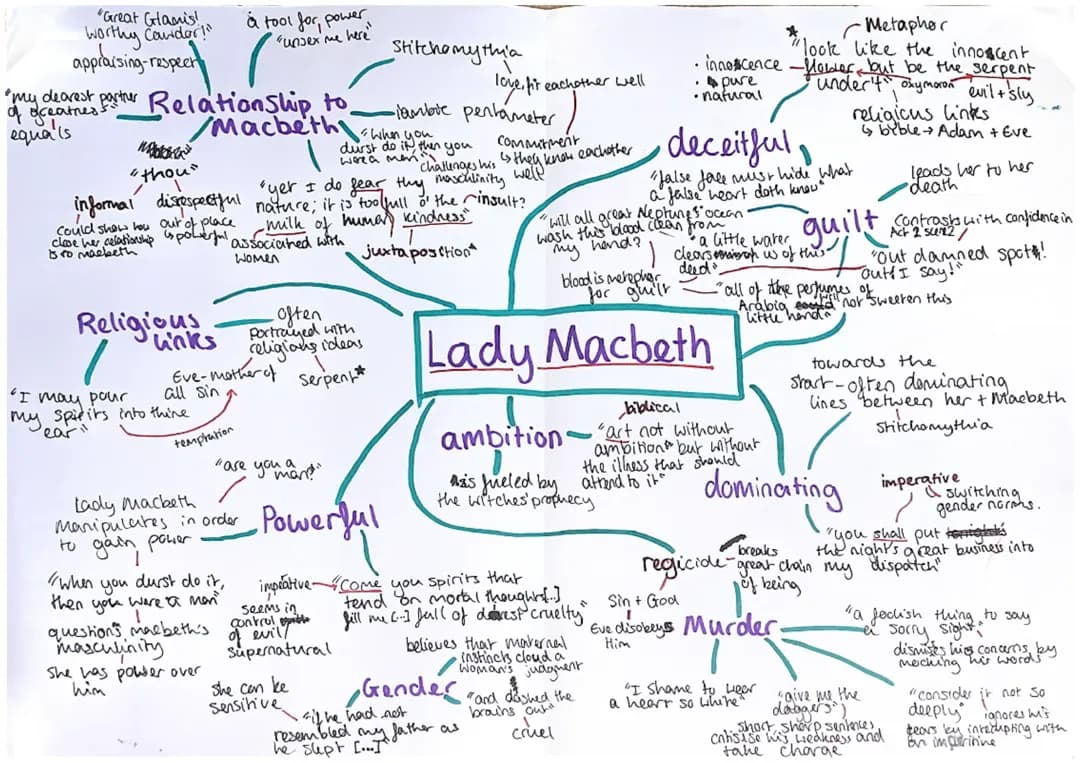 "Great Glamis!
worthy Cawdor!"
appraising-respect
a tool for power
"unsex me here"
Stitchomythia
"My dearest partner
of greatness"
equals
Relationship to
Macbeth
iambic pentameter
love, fit eachother well
commitment
↳ they know eachother
well
"when you
durst do it then you
were a man"
challenges his
masculinity
"thou"
informal
disrespectful
could show how
close her relationship
is to macbeth
out of place
is powerful
"yet I do fear thy
nature; it is too full o' the
milk of human kindness"
insult?
associated with
women
juxtaposition"
*
Metaphor
"look like the innocent
flower but be the serpent
under't"
oxymoron
evil + sly
• innocence
• pure
• natural
religious links
↳ bible → Adam + Eve
deceitful
"false face must hide what
a false heart doth know"
guilt
leads her to her
death
contrasts with confidence in
Act 2 scene 2
"Out damned spot!
out! I say!"
"will all great Neptune's ocean
wash this blood clean from
my hand?
"a little water
clears us of this
deed"
blood is metaphor
for guilt
"all of the perfumes of
Arabia will not sweeten this
little hand"
Religious
links
Often
portrayed with
religious ideas
Eve-mother of
all sin
serpent*
"I may pour
my spirits into thine
ear"
temptation
Lady Macbeth
ambition
is fueled by
the witches' prophecy
biblical
"art not without
ambition" but without
the illness that should
attend to it"
towards the
start - often dominating
lines between her + Macbeth
stitchomythia
dominating
imperative
& switching
gender norms.
"you shall put
the night's great business into
my dispatch"
"are you a
man?"
Lady Macbeth
manipulates in order
to gain power
Powerful
"when you durst do it,
then you were a man"
questions macbeth's
masculinity
she has power over
him
imprative
"Come you spirits that
tend on mortal thoughts [..]
fill me [..] full of direst cruelty"
seems in
control
of evil/
supernatural
Gender
believes that maternal
instincts cloud a
woman's judgment
"and dashed the
brains out"
cruel
she can be
sensitive
"if he had not
resembled my father as
he slept [...]
regicide
breaks
great chain
of being
Sin + God
Eve disobeys
Him
Murder
"I shame to wear
a heart so white"
"give me the
daggers"
short sharp sentences
critisise his weakness and
take charge
"a foolish thing to say
a sorry sight"
dismises his concerns by
mocking his words
"consider it not so
deeply"
ignores his
fears by interupting with
an impritive